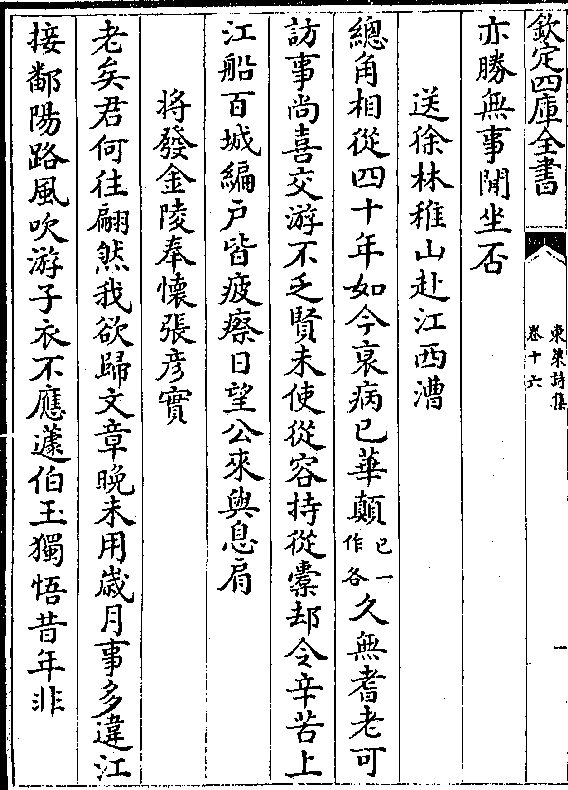 欽定四庫全書
東萊詩集
卷十六
一
亦勝無事閒坐否
送徐林稚山赴江西漕
總角相從四十年如今衰病已華顛已一作各久無耆老可
訪事尚喜交游不乏賢未使從容持從橐却令辛苦上
江船百城編戶皆疲瘵日望公來與息肩
將發金陵奉懷張彦實
老矣君何往翩然我欲歸文章晚未用歳月事多違江
接鄱陽路風吹游子衣不應蘧伯玉獨悟昔年非